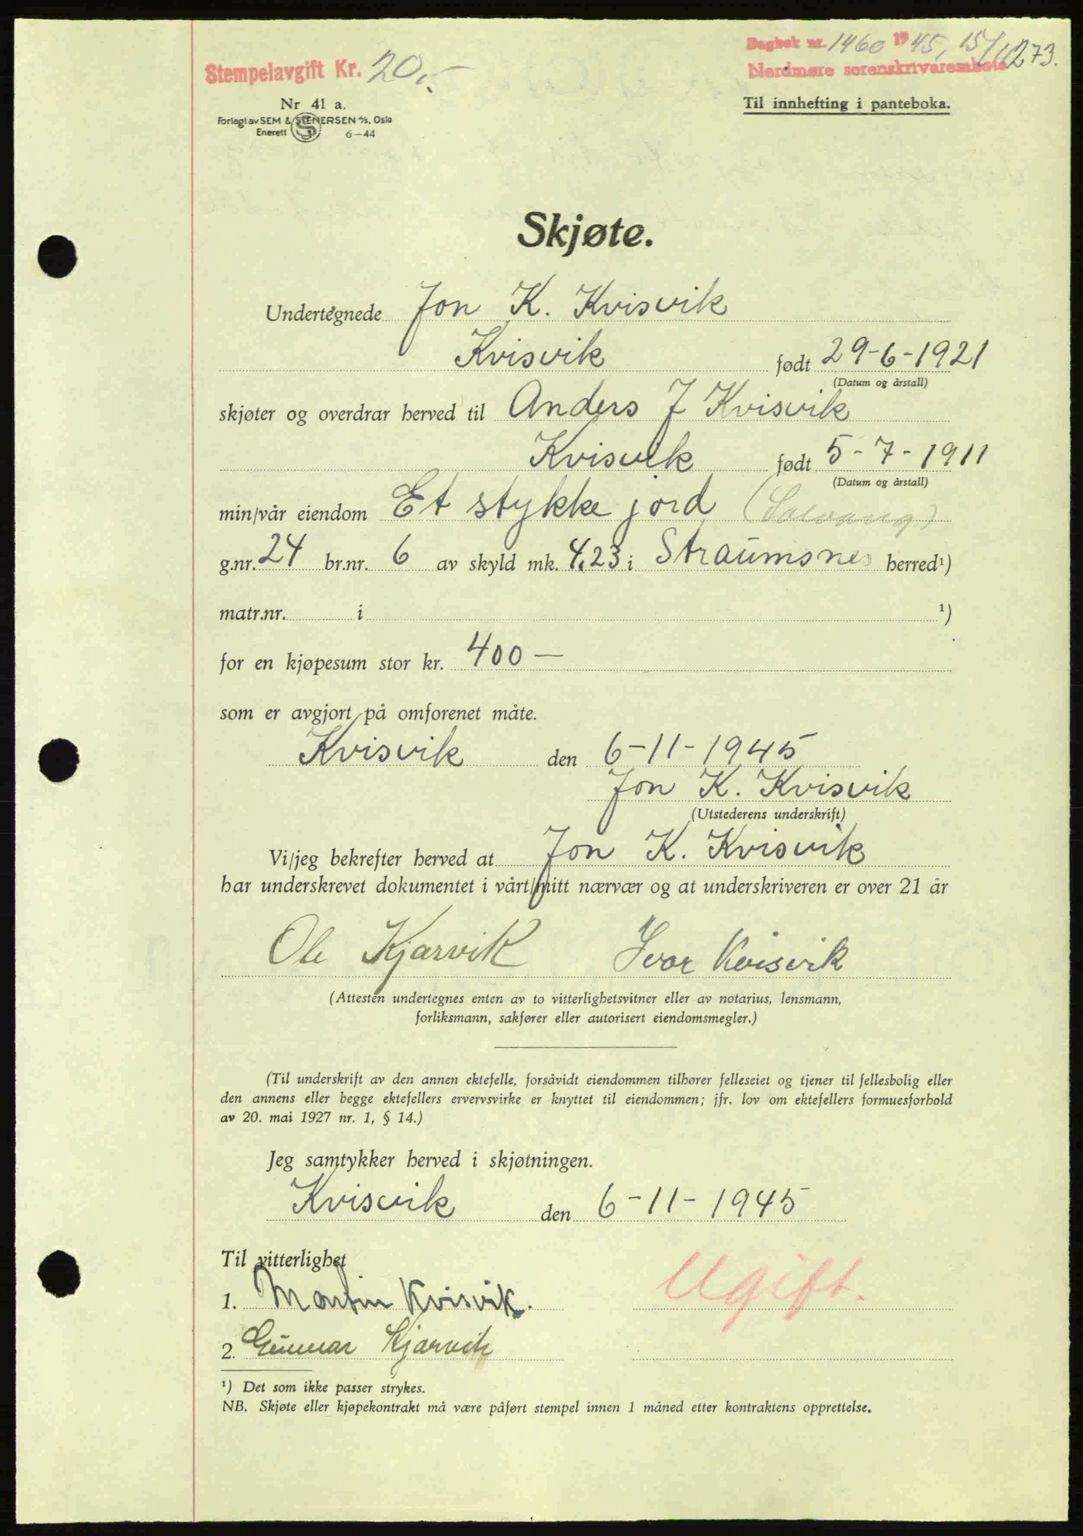 Stempelavgift Kr. 20,-
Dagbok nr. 1460 1945, 15/11 273.
Nordmøre sorenskriverembete
Nr 41 a.
Forlagt av SEM & STENERSEN A/S, Oslo
Enerett 6-44
Til innhefting i panteboka.
Skjøte.
Undertegnede Jon K. Kvisvik
Kvisvik født 29-6-1921
(Datum og årstall)
skjøter og overdrar herved til Anders J Kvisvik
Kvisvik født 5-7-1911
(Datum og årstall)
min/vår eiendom Et stykke jord (Solvang)
g.nr. 24 br.nr. 6 av skyld mk. 4,23 i Straumsnes herred¹)
matr.nr. i ¹)
for en kjøpesum stor kr. 400 —
som er avgjort på omforenet måte.
Kvisvik den 6-11-1945
Jon K. Kvisvik
(Utstederens underskrift)
Vi/jeg bekrefter herved at Jon K. Kvisvik
har underskrevet dokumentet i vårt/mitt nærvær og at underskriveren er over 21 år
Ole Kjørvik Ivar Kvisvik
(Attesten undertegnes enten av to vitterlighetsvitner eller av notarius, lensmann,
forliksmann, sakfører eller autorisert eiendomsmegler.)
(Til underskrift av den annen ektefelle, forsåvidt eiendommen tilhører felleseiet og tjener til fellesbolig eller
den annens eller begge ektefellers ervervsvirke er knyttet til eiendommen; jfr. lov om ektefellers formuesforhold
av 20. mai 1927 nr. 1, § 14.)
Jeg samtykker herved i skjøtningen.
Kvisvik den 6-11-1945
Til vitterlighet
1. Martin Kvisvik.
Ugift.
2. Gunnar Kjørvik
¹) Det som ikke passer strykes.
NB. Skjøte eller kjøpekontrakt må være påført stempel innen 1 måned etter kontraktens opprettelse.